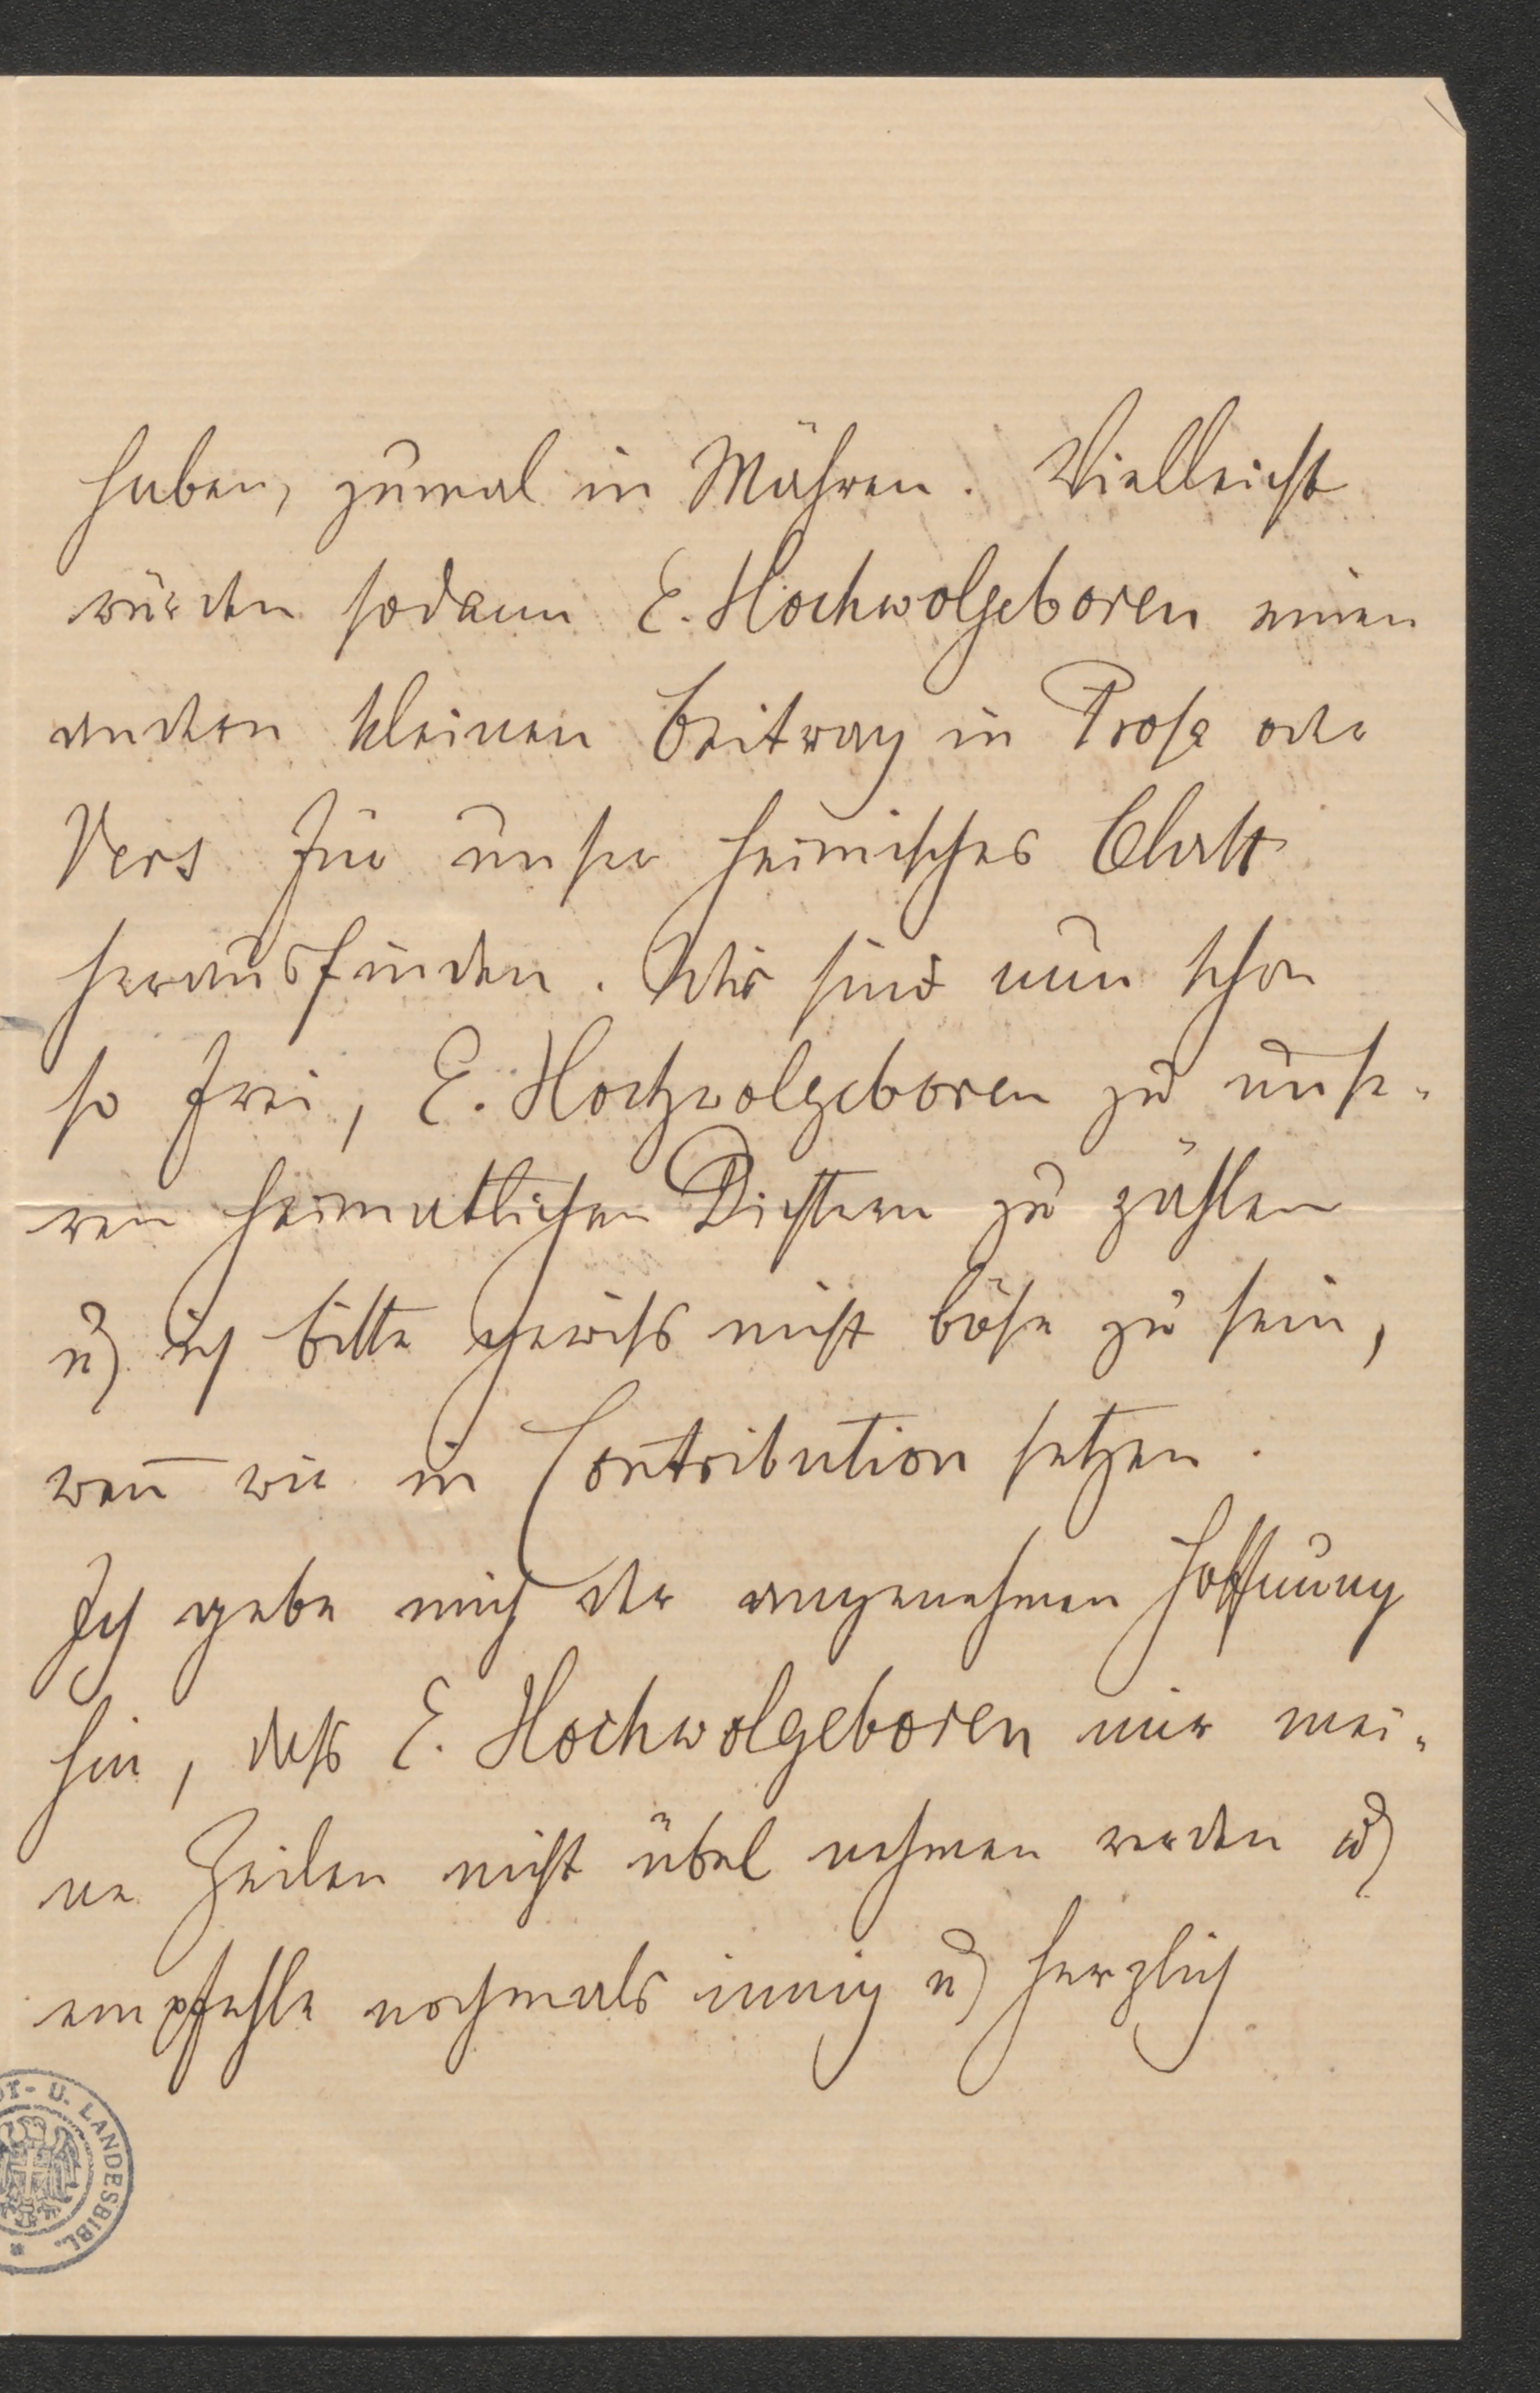 haben, zumal in Mähren. Vielleicht
würden sodann E. Hochwolgeboren einen
andern kleinen Beitrag in Prosa oder
Vers für unser heimisches Blatt
herausfinden. Wir sind nun schon
so frei, E. Hochwolgeboren zu unse-
ren heimatlichen Dichtern zu zählen
u. ich bitte gewiss nicht böse zu sein,
wen̅ wir in Contribution setzen.
Ich gebe mich der angenehmen Hoffnung
hin, dass E. Hochwolgeboren mir mei-
ne Zeilen nicht übel nehmen werden u.
empfehle nochmals innig u. herzlich
U. LANDESBIBL.